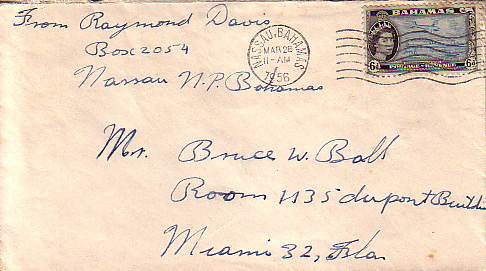 From Raymond Davis
Box 2054
Nassau N.P. Bahamas
NASSAU·BAHAMAS
MAR 28
11-AM
1956
BAHAMAS
6d
POSTAGE REVENUE
6d
Mr. Bruce W. Ball
Room 1135 dupont Buildin
Miami 32, Fla